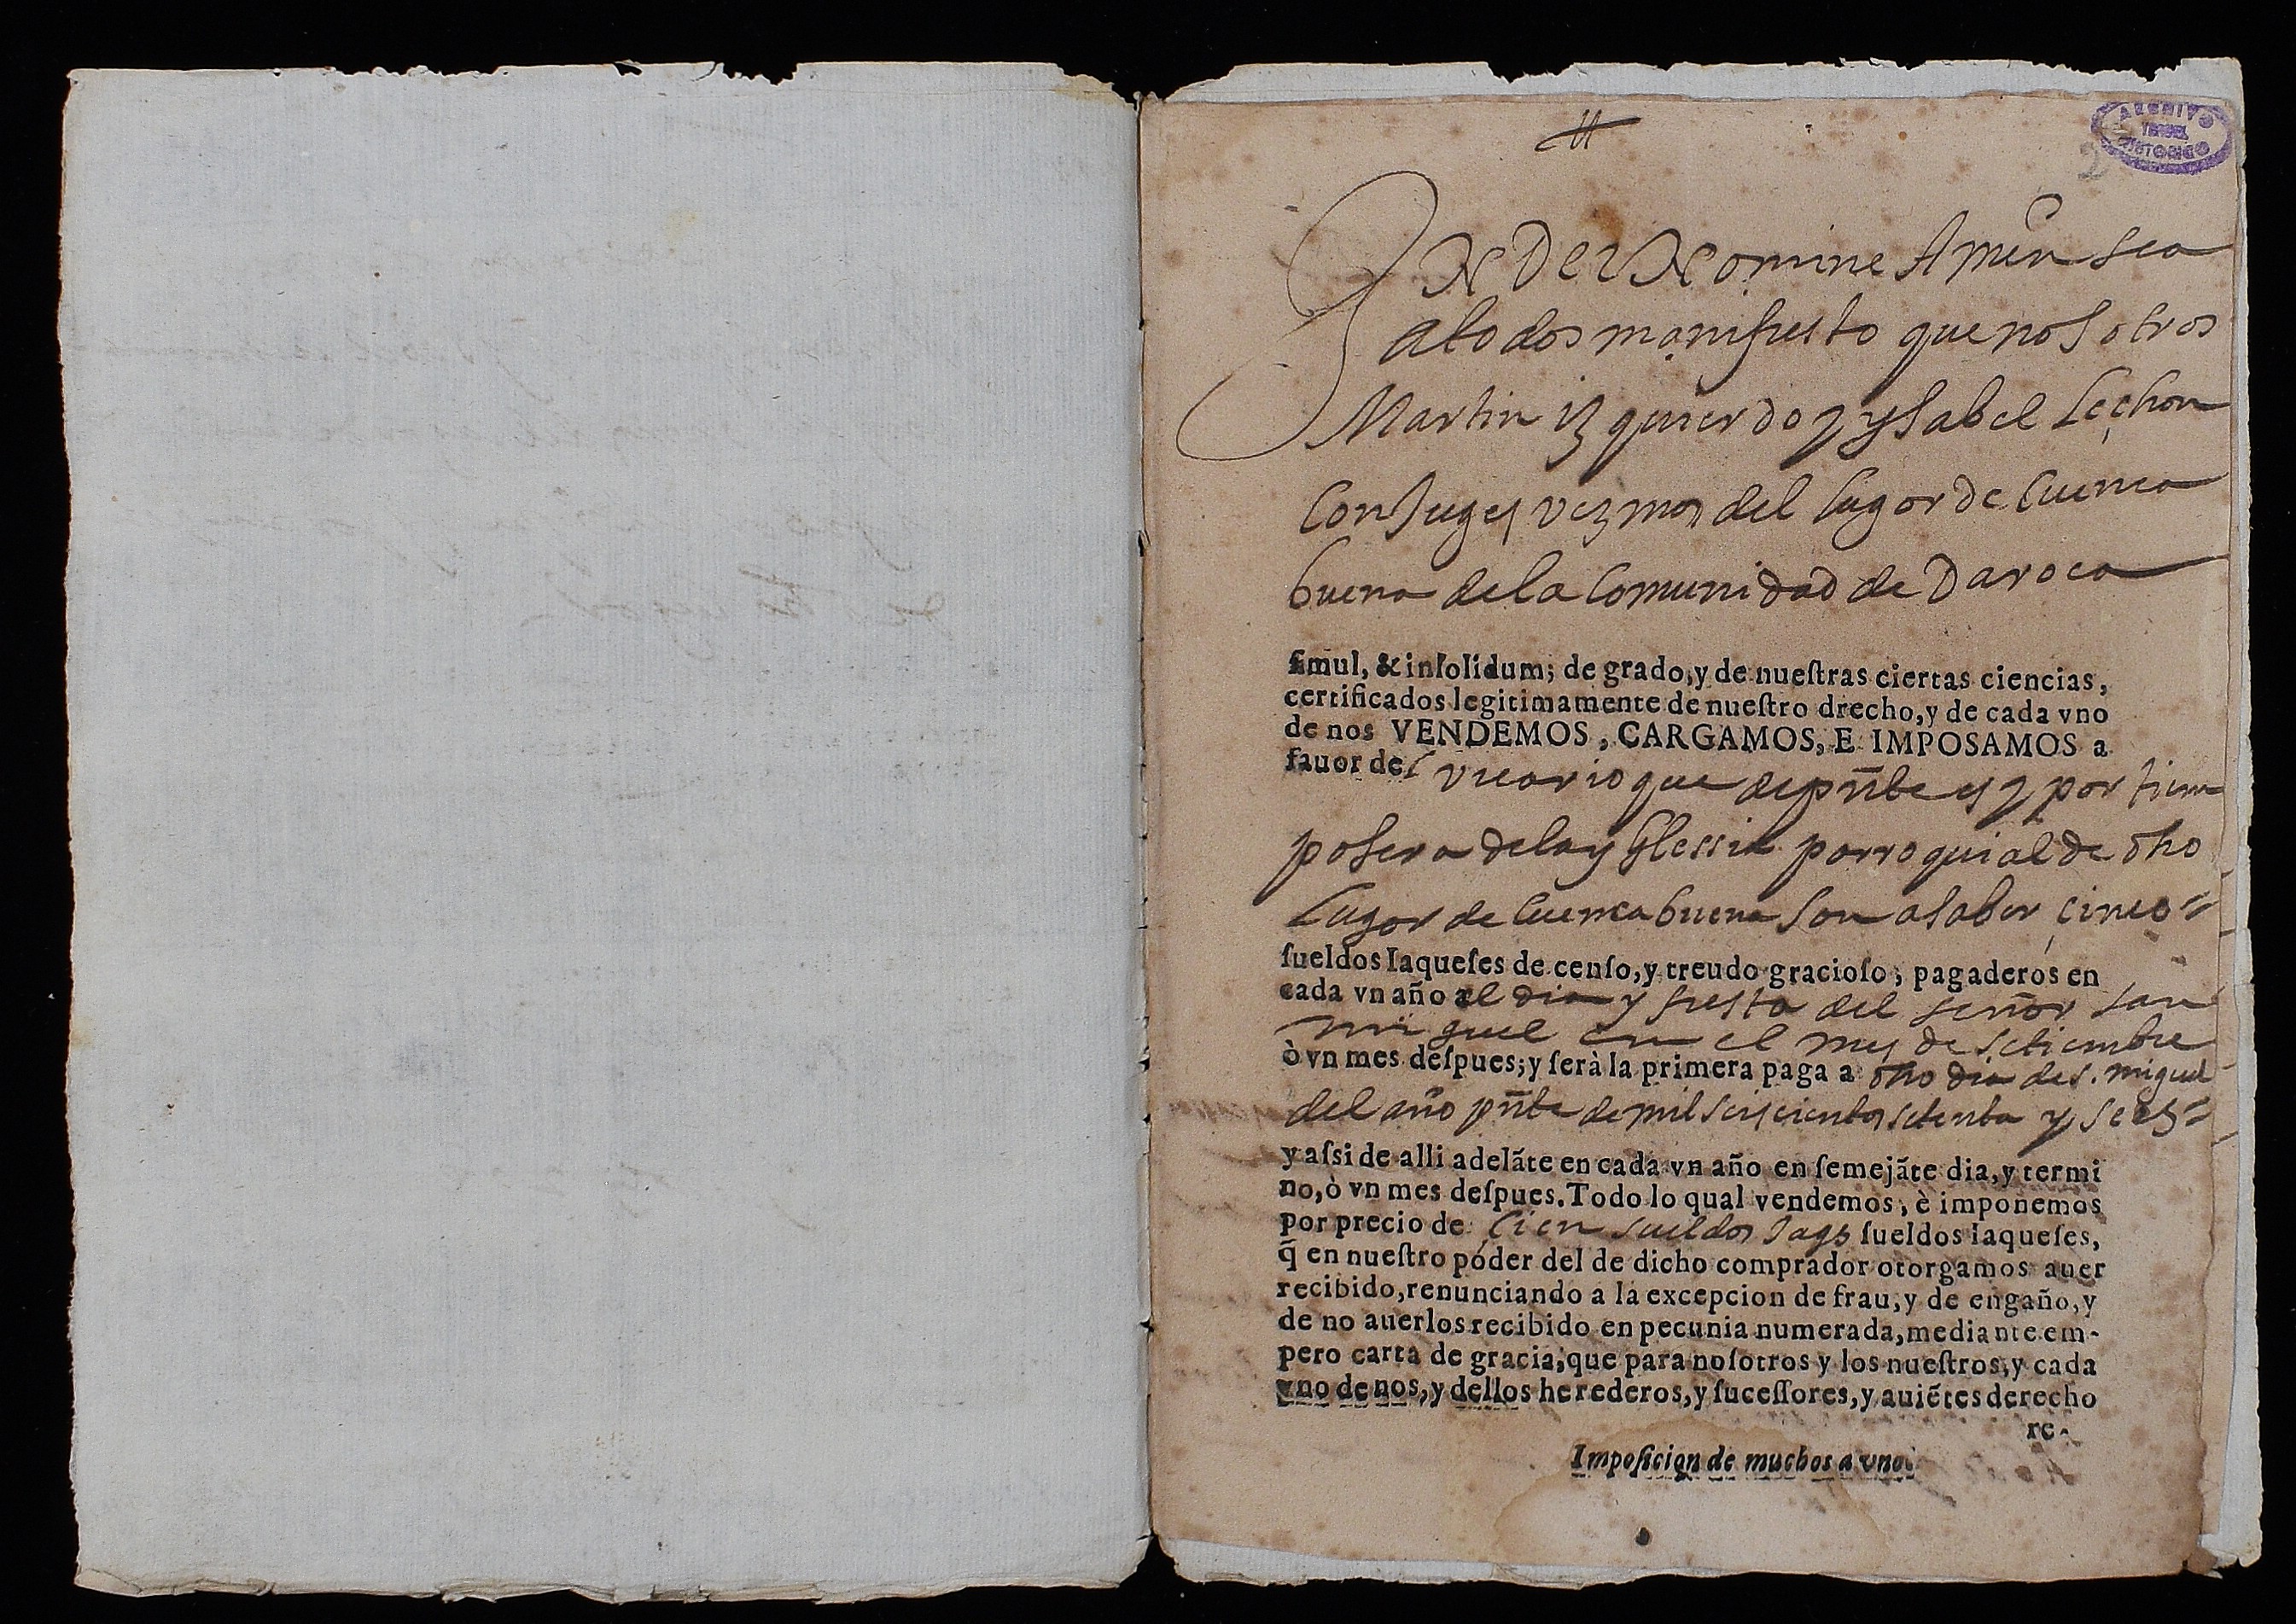 ARCHIVO
TERUEL
HISTORICO
2
IN DEI Nomine Amen sea
a todos manifiesto que nosotros
Martin izquierdo y ysabel Lechon
Conjuges vezinos del lugar de Cuenca
buena de la Comunidad de Daroca
simul, & insolidum; de grado, y de nuestras ciertas ciencias,
certificados legitimamente de nuestro drecho, y de cada vno
de nos VENDEMOS, CARGAMOS, E IMPOSAMOS a
fauor del vicario que de pñte es y por tiem
po sera de la yglessia parroquial de dho
lugar de Cuenca buena son a saber cinco =
sueldos Iaqueses de censo, y treudo gracioso; pagaderos en
cada vn año al dia y fiesta del señor san
miguel en el mes de setiembre
ò vn mes despues; y serà la primera paga a dho dia de s. miguel
del año pñte de mil seiscientos setenta y seis =
y assi de alli adelãte en cada vn año en semejãte dia, y termi
no, ò vn mes despues. Todo lo qual vendemos, è imponemos
por precio de Cien sueldos Jaqs sueldos iaqueses,
q̃ en nuestro poder del de dicho comprador otorgamos auer
recibido, renunciando a la excepcion de frau, y de engaño, y
de no auerlos recibido en pecunia numerada, mediante em-
pero carta de gracia, que para nosotros y los nuestros, y cada
vno de nos, y dellos herederos, y sucessores, y auiẽtes derecho
re-
Imposicion de muchos a vno.